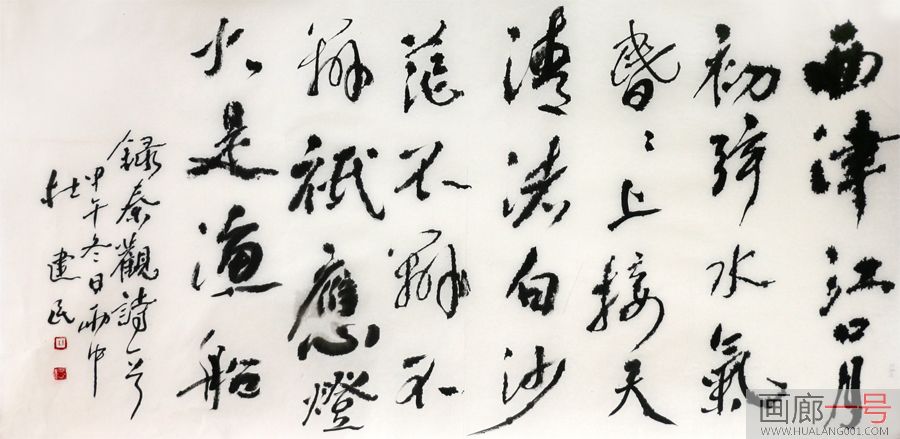 西津江口月
初弦水氣
昏〻上接天
清渚白沙
茫不辨不
辨祇應燈
火是漁船
錄秦觀詩一首
甲午冬日雨中
杜建民
画廊一号
WWW.HUALANG001.COM